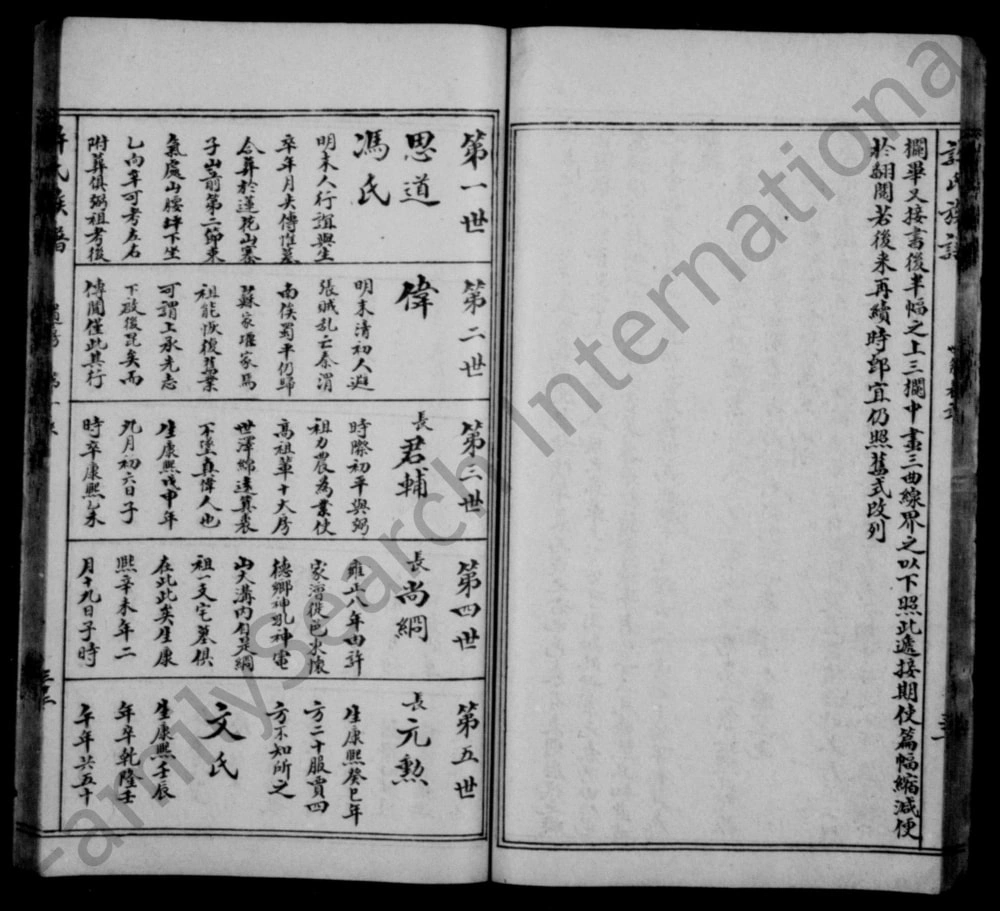 欄畢又接書後半幅之上三欄中畫三曲線界之以下照此遞接期使篇幅縮減便
於翻閱若後来再續時郎宜仍照舊式改列
第一世
思道
馮氏
明末人行誼與生
卒年月失傳惟墓
合葬於蓮花山寨
子山前第二節東
氣處山腰坪下坐
乙向辛可考左右
附葬俱弼祖考後
第二世
偉
明末清初人避
張賊乱亡秦渭
南俟蜀平仍歸
蘇家堆家焉
祖能恢復舊業
可謂上承先志
下啟後昆矣而
傳聞僅此其行
第三世
長君輔
時際初平與弼
祖力農為業使
高祖輩十大房
世澤綿遠箕裘
不墜真偉人也
生康熙戊申年
九月初六日子
時卒康熙乙未
第四世
長尚綱
雍正八年由許
家漕從邑東懷
德鄉神孔神電
山大溝內自是綱
祖一支宅墓俱
在此此矣生康
熙辛未年二
月十九日子時
第五世
長元勲
生康熙癸巳年
方二十服賈四
方不知所之
文氏
生康熙壬辰
年卒乾隆壬
午年共五十
FamilySearch International